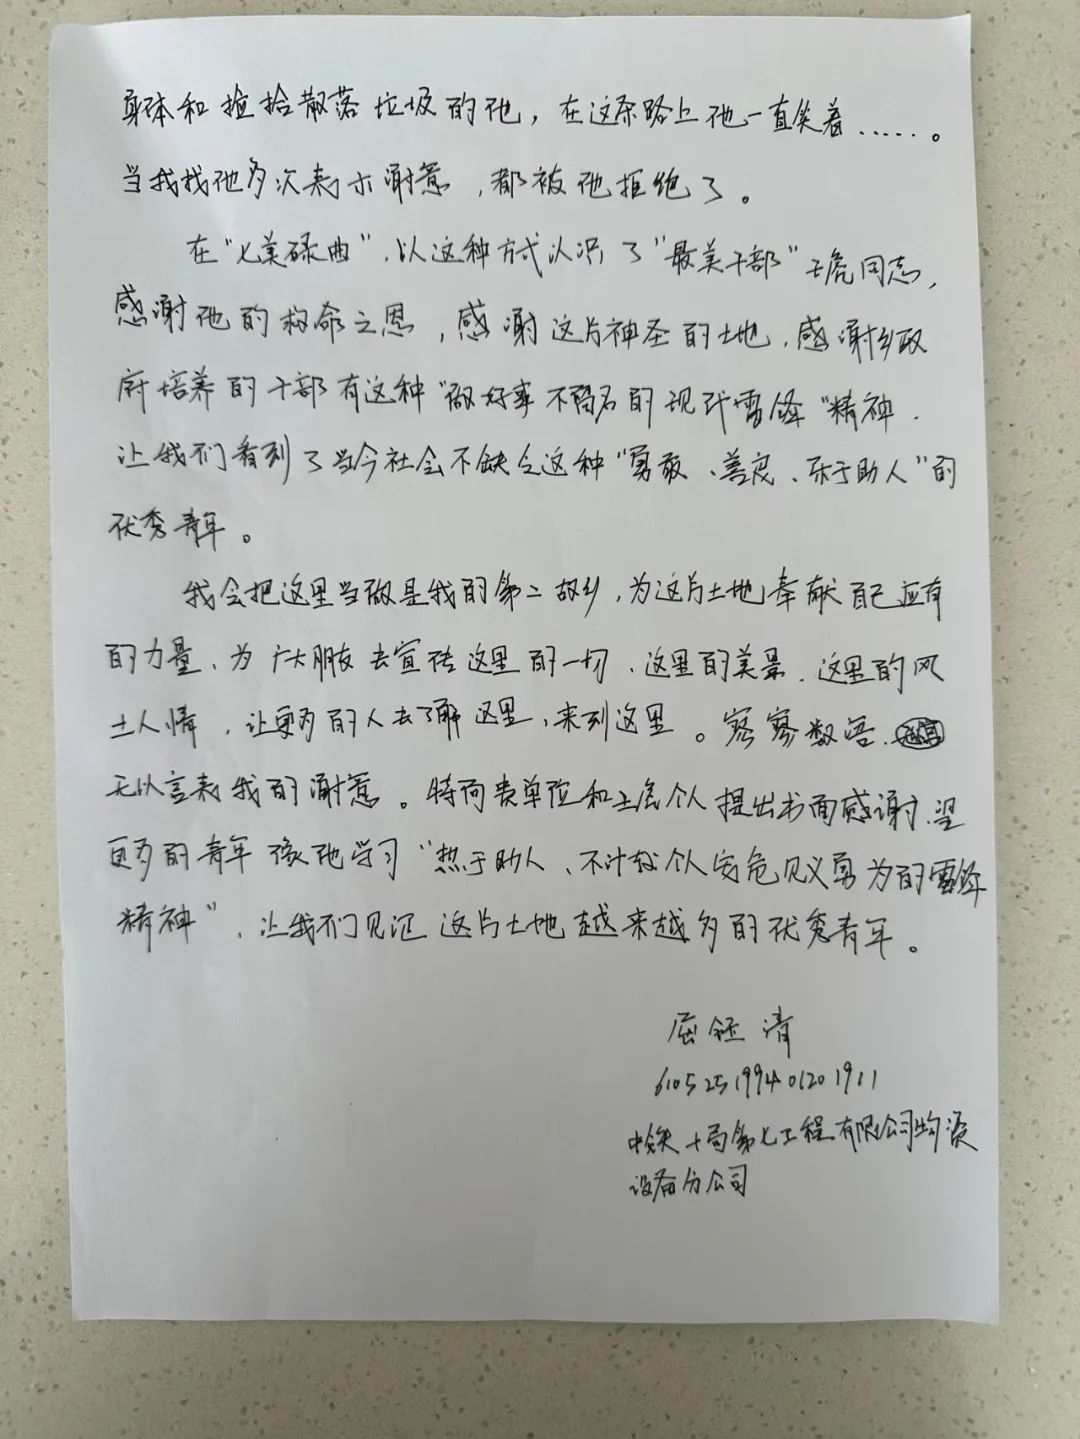 身体和捡拾散落垃圾的他，在这条路上他一直笑着……。
当我找他多次表示谢意，都被他拒绝了。
在“七美碌曲”，以这种方式认识了“最美干部”王虎同志，
感谢他的救命之恩，感谢这片神圣的土地，感谢乡政
府培养的干部有这种“做好事不留名的现代雷锋”精神，
让我们看到了当今社会不缺乏这种“勇敢、善良、乐于助人”的
优秀青年。
我会把这里当做是我的第二故乡，为这片土地奉献自己应有
的力量、为广大朋友去宣传这里的一切、这里的美景、这里的风
土人情，让更多的人去了解这里，来到这里。寥寥数语、
无以言表我的谢意。特向贵单位和王虎个人提出书面感谢，望
更多的青年像他学习“热于助人、不计较个人安危见义勇为的雷锋
精神”，让我们见证这片土地越来越多的优秀青年。
屈钰清
610525199401201911
中铁十局第七工程有限公司物资
设备分公司